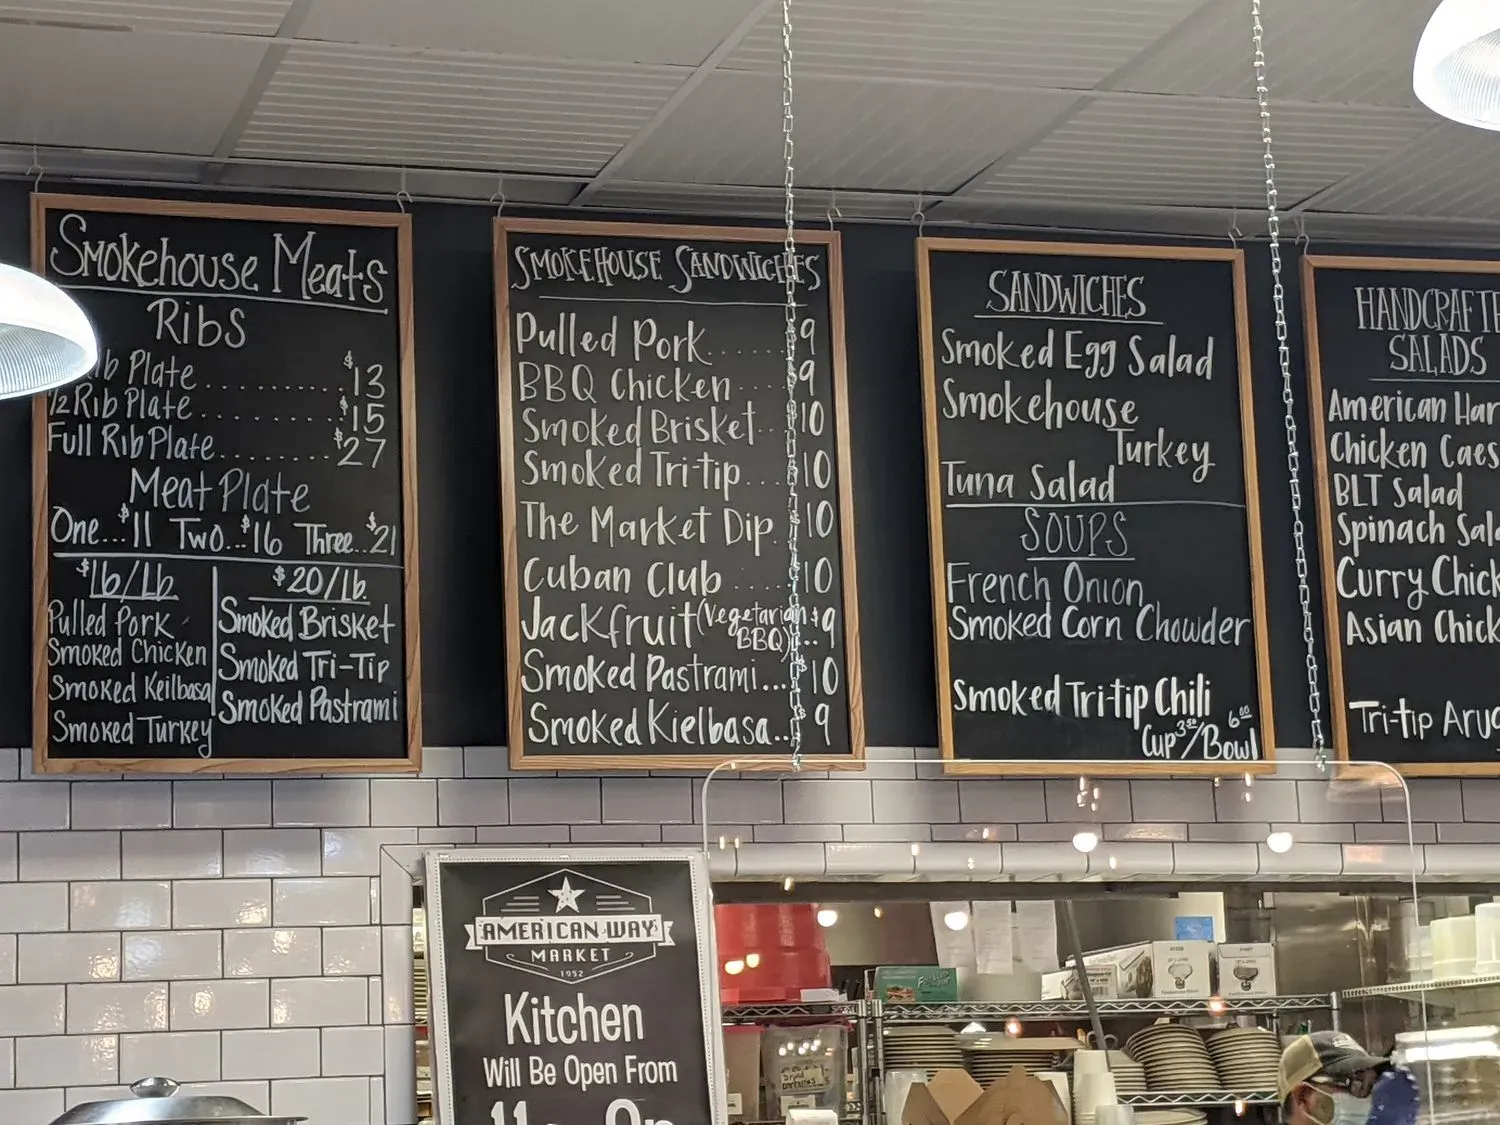 Smokehouse Meats
Ribs
Plate.......... $13
1/2 Rib Plate......... $15
Full Rib Plate........ $27
Meat Plate
One...$11 Two...$16 Three..$21
$16/Lb
Pulled Pork
Smoked Chicken
Smoked Keilbasa
Smoked Turkey
$20/lb.
Smoked Brisket
Smoked Tri-Tip
Smoked Pastrami
Smokehouse Sandwiches
Pulled Pork....... 9
BBQ Chicken..... 9
Smoked Brisket... 10
Smoked Tri-tip.... 10
The Market Dip.. 10
Cuban Club ..... 10
Jackfruit (Vegetarian BBQ)..$9
Smoked Pastrami... 10
Smoked Kielbasa..$ 9
SANDWICHES
Smoked Egg Salad
Smokehouse
Turkey
Tuna Salad
SOUPS
French Onion
Smoked Corn Chowder
Smoked Tri-tip Chili
Cup 3.50/Bowl 6.00
SALADS
American
Chicken
BLT Salad
Spinach
Curry
Asian
Tri-tip
AMERICAN WAY
MARKET
1952
Kitchen
Will Be Open From